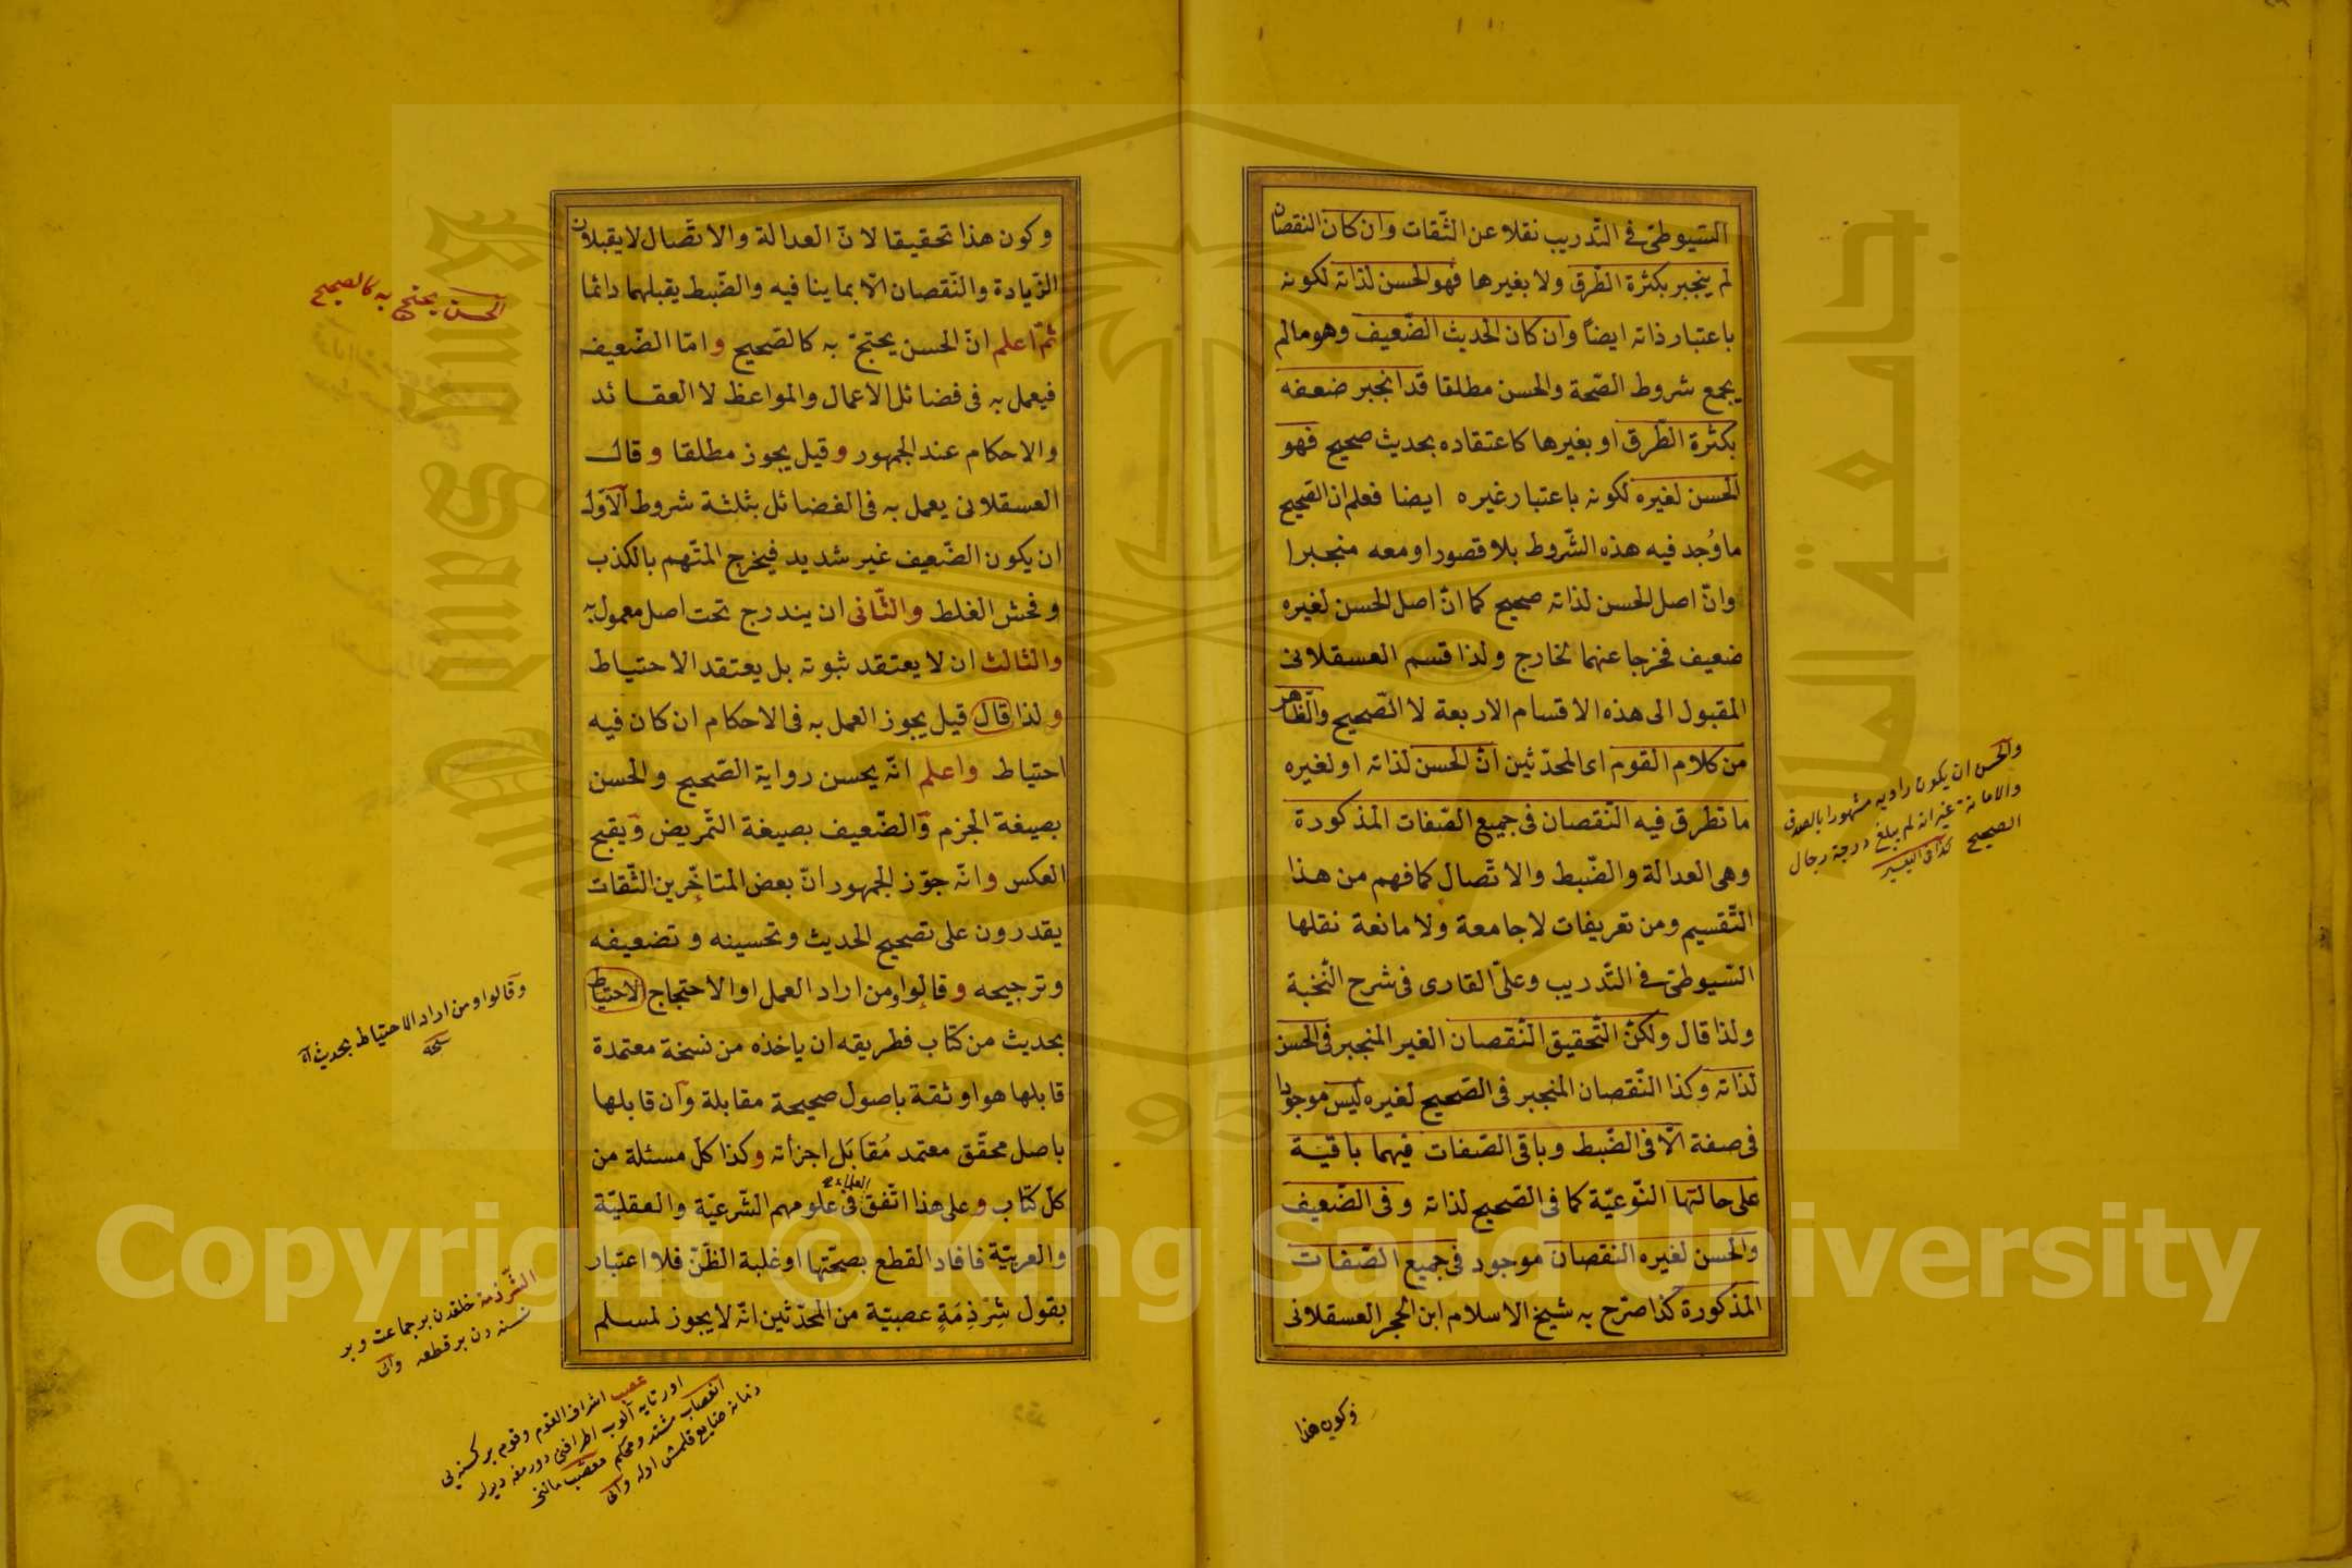 السّيوطىّ فى التّدريب نقلا عن الثّقات وان كان النقصان
لم ينجبر بكثرة الطّرق ولا بغيرها فهو الحسن لذاته لكونه
باعتبار ذاته ايضاً وان كان الحديث الضّعيف وهو مالم
يجمع شروط الصّحة والحسن مطلقا قد انجبر ضعفه
بكثرة الطّرق او بغيرها كاعتقاده بحديث صحيح فهو
الحسن لغيره لكونه باعتبار غيره ايضا فعلم ان الصّحيح
ماوُجد فيه هذه الشّروط بلا قصور او معه منجبرا
وانّ اصل الحسن لذاته صحيح كما انّ اصل الحسن لغيره
ضعيف فخرجا عنهما لخارج ولذا قسم العسقلانى
المقبول الى هذه الاقسام الاربعة لا الصّحيح والظّاهر
من كلام القوم اى المحدّثين انّ الحسن لذاته او لغيره
ما تطرق فيه النّقصان فى جميع الصّفات المذكورة
وهى العدالة والضّبط والاتّصال كما فهم من هذا
التّقسيم ومن تعريفات لا جامعة ولا مانعة نقلها
السّيوطىّ فى التّدريب وعلىّ القارى فى شرح النّخبة
ولذا قال ولكنّ التّحقيق النّقصان الغير المنجبر فى الحسن
لذاته وكذا النّقصان المنجبر فى الصّحيح لغيره ليس موجودا
فى صفة الّا فى الضّبط وباقى الصّفات فيهما باقية
على حالتها النّوعيّة كما فى الصّحيح لذاته وفى الضّعيف
والحسن لغيره النقصان موجود فى جميع الصّفات
المذكورة كذا صرّح به شيخ الاسلام ابن الحجر العسقلانى
وكون هذا
والحسن ان يكون راويه مشهورا بالصدق
والامانة غير انه لم يبلغ درجة رجال
الصحيح كذا فى التيسير
وكون هذا تحقيقا لانّ العدالة والاتّصال لا يقبلان
الزّيادة والنّقصان الّا بما ينافيه والضّبط يقبلهما دائما
ثمّ اعلم انّ الحسن يحتجّ به كالصّحيح وامّا الضّعيف
فيعمل به فى فضائل الاعمال والمواعظ لا العقائد
والاحكام عند الجمهور وقيل يجوز مطلقا وقال
العسقلانى يعمل به فى الفضائل بثلثة شروط الاوّل
ان يكون الضّعيف غير شديد فيخرج المتّهم بالكذب
وفحش الغلط والثّانى ان يندرج تحت اصل معمول به
والثالث ان لا يعتقد ثبوته بل يعتقد الاحتياط
ولذا قال قيل يجوز العمل به فى الاحكام ان كان فيه
احتياط واعلم انّه يحسن رواية الصّحيح والحسن
بصيغة الجزم والضّعيف بصيغة التّمريض ويقبح
العكس وانّه جوّز الجمهور انّ بعض المتاخّرين الثّقات
يقدرون على تصحيح الحديث وتحسينه وتضعيفه
وترجيحه وقالوا ومن اراد العمل او الاحتجاج الاحتياط
بحديث من كتاب فطريقه ان ياخذه من نسخة معتمدة
قابلها هو او ثقة باصول صحيحة مقابلة وان قابلها
باصل محقّق معتمد مُقابَل اجزأته وكذا كلّ مسئلة من
كلّ كتاب وعلى هذا اتّفق العلماء فى علومهم الشّرعيّة والعقليّة
والعربيّة فافاد القطع بصحّتها او غلبة الظّنّ فلا اعتبار
بقول شِرْذِمَةٍ عصبيّة من المحدّثين انّه لا يجوز لمسلم
الحسن يحتج به كالصحيح
وقالوا ومن اراد الاحتياط بحديث اه
نسخه
الشّرذمة خلقدن بر جماعت وبر
نسنه دن بر قطعه وان
اشراف القوم وقوم بر كسنه يى
Copyright © King Saud University
King Saud University
جامعة الملك سعود
1957